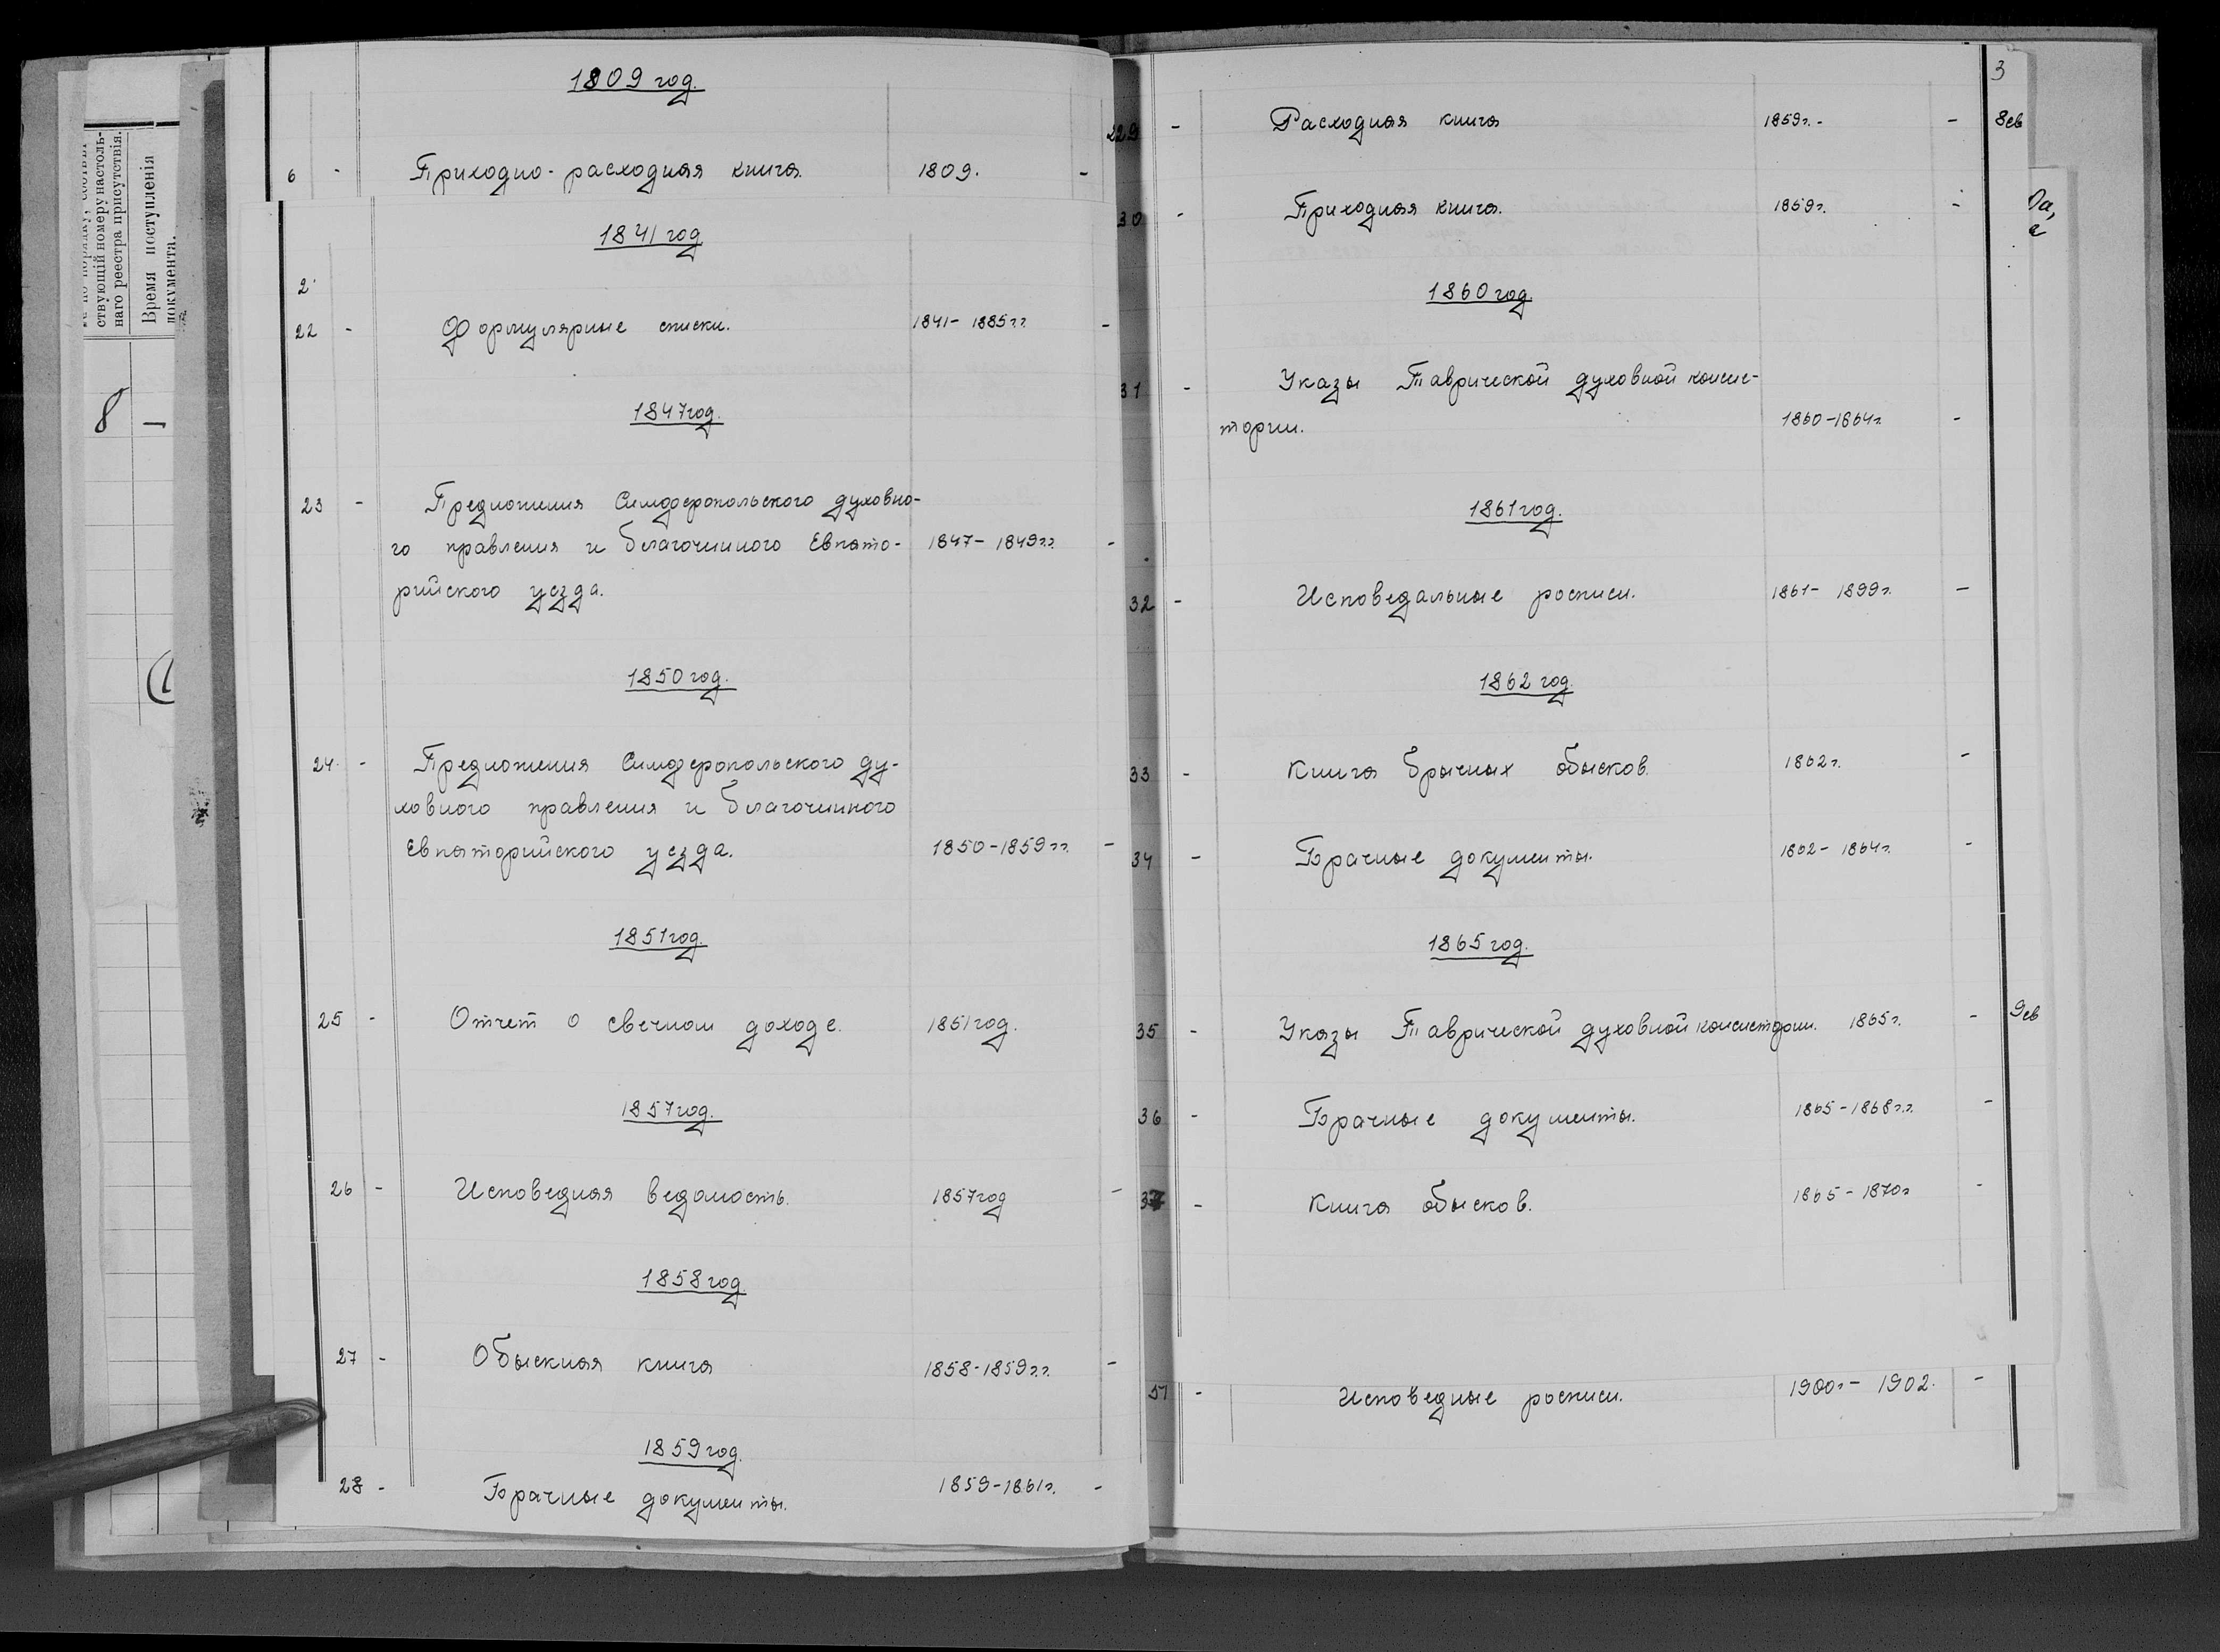 ствующій номеру настоль-
наго реестра присутствія.
Время поступленія
документа.
8 -
1809 год.
6 - Приходно-расходная книга. 1809. -
1841 год
2
22 - Формулярные списки. 1841- 1885 г.г. -
1847 год.
23 - Предложения Симферопольского духовно-
го правления и благочинного Евпато- 1847- 1849 г.г. -
рийского уезда.
1850 год.
24 - Предложения Симферопольского ду-
ховного правления и благочинного
Евпаторийского уезда. 1850-1859 г.г. -
1851 год.
25 - Отчет о свечном доходе. 1851 год.
1857 год.
26 - Исповедная ведомость. 1857 год -
1858 год
27 - Обыскная книга 1858-1859 г.г. -
1859 год.
28 - Брачные документы. 1859-1861 г. -
3
229 - Расходная книга 1859 г. - - 8св
30 - Приходная книга. 1859 г. -
1860 год.
31 - Указы Таврической духовной консис-
тории. 1860-1864 г. -
1861 год.
32 - Исповедальные росписи. 1861- 1899 г. -
1862 год.
33 - Книга брачных обысков. 1862 г. -
34 - Брачные документы. 1862- 1864 г. -
1865 год.
35 - Указы Таврической духовной консистории. 1865 г. - 9св
36 - Брачные документы. 1865-1868 г.г. -
37 - Книга обысков. 1865-1870 г -
51 - Исповедные росписи. 1900 г- 1902. -